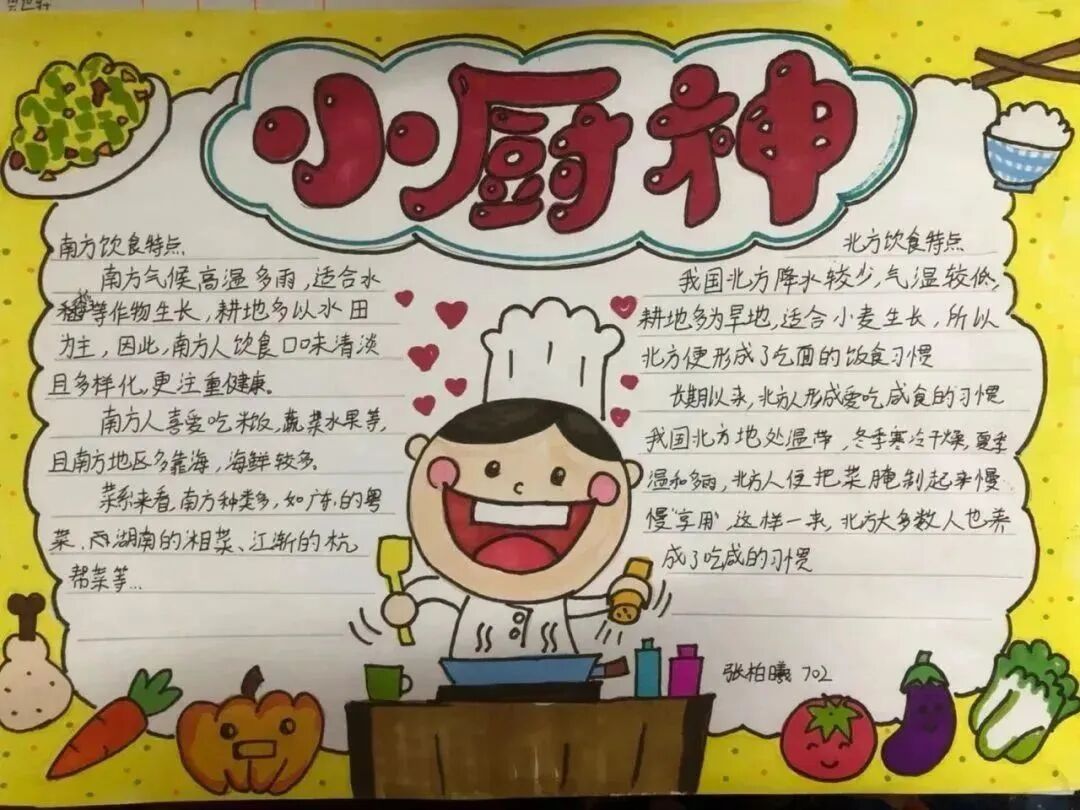 小厨神
南方饮食特点
南方气候高温多雨,适合水
稻等作物生长,耕地多以水田
为主,因此,南方人饮食口味清淡
且多样化,更注重健康。
南方人喜爱吃米饭,蔬菜水果等,
且南方地区多靠海,海鲜较多。
菜系来看,南方种类多,如广东的粤
菜、湖南的湘菜、江浙的杭
帮菜等...
北方饮食特点
我国北方降水较少,气温较低,
耕地多为旱地,适合小麦生长,所以
北方便形成了吃面的饭食习惯
长期以来,北方人形成爱吃咸食的习惯
我国北方地处温带,冬季寒冷干燥,夏季
温和多雨,北方人便把菜腌制起来慢
慢"享用",这样一来,北方大多数人也养
成了吃咸的习惯
张柏曦 702